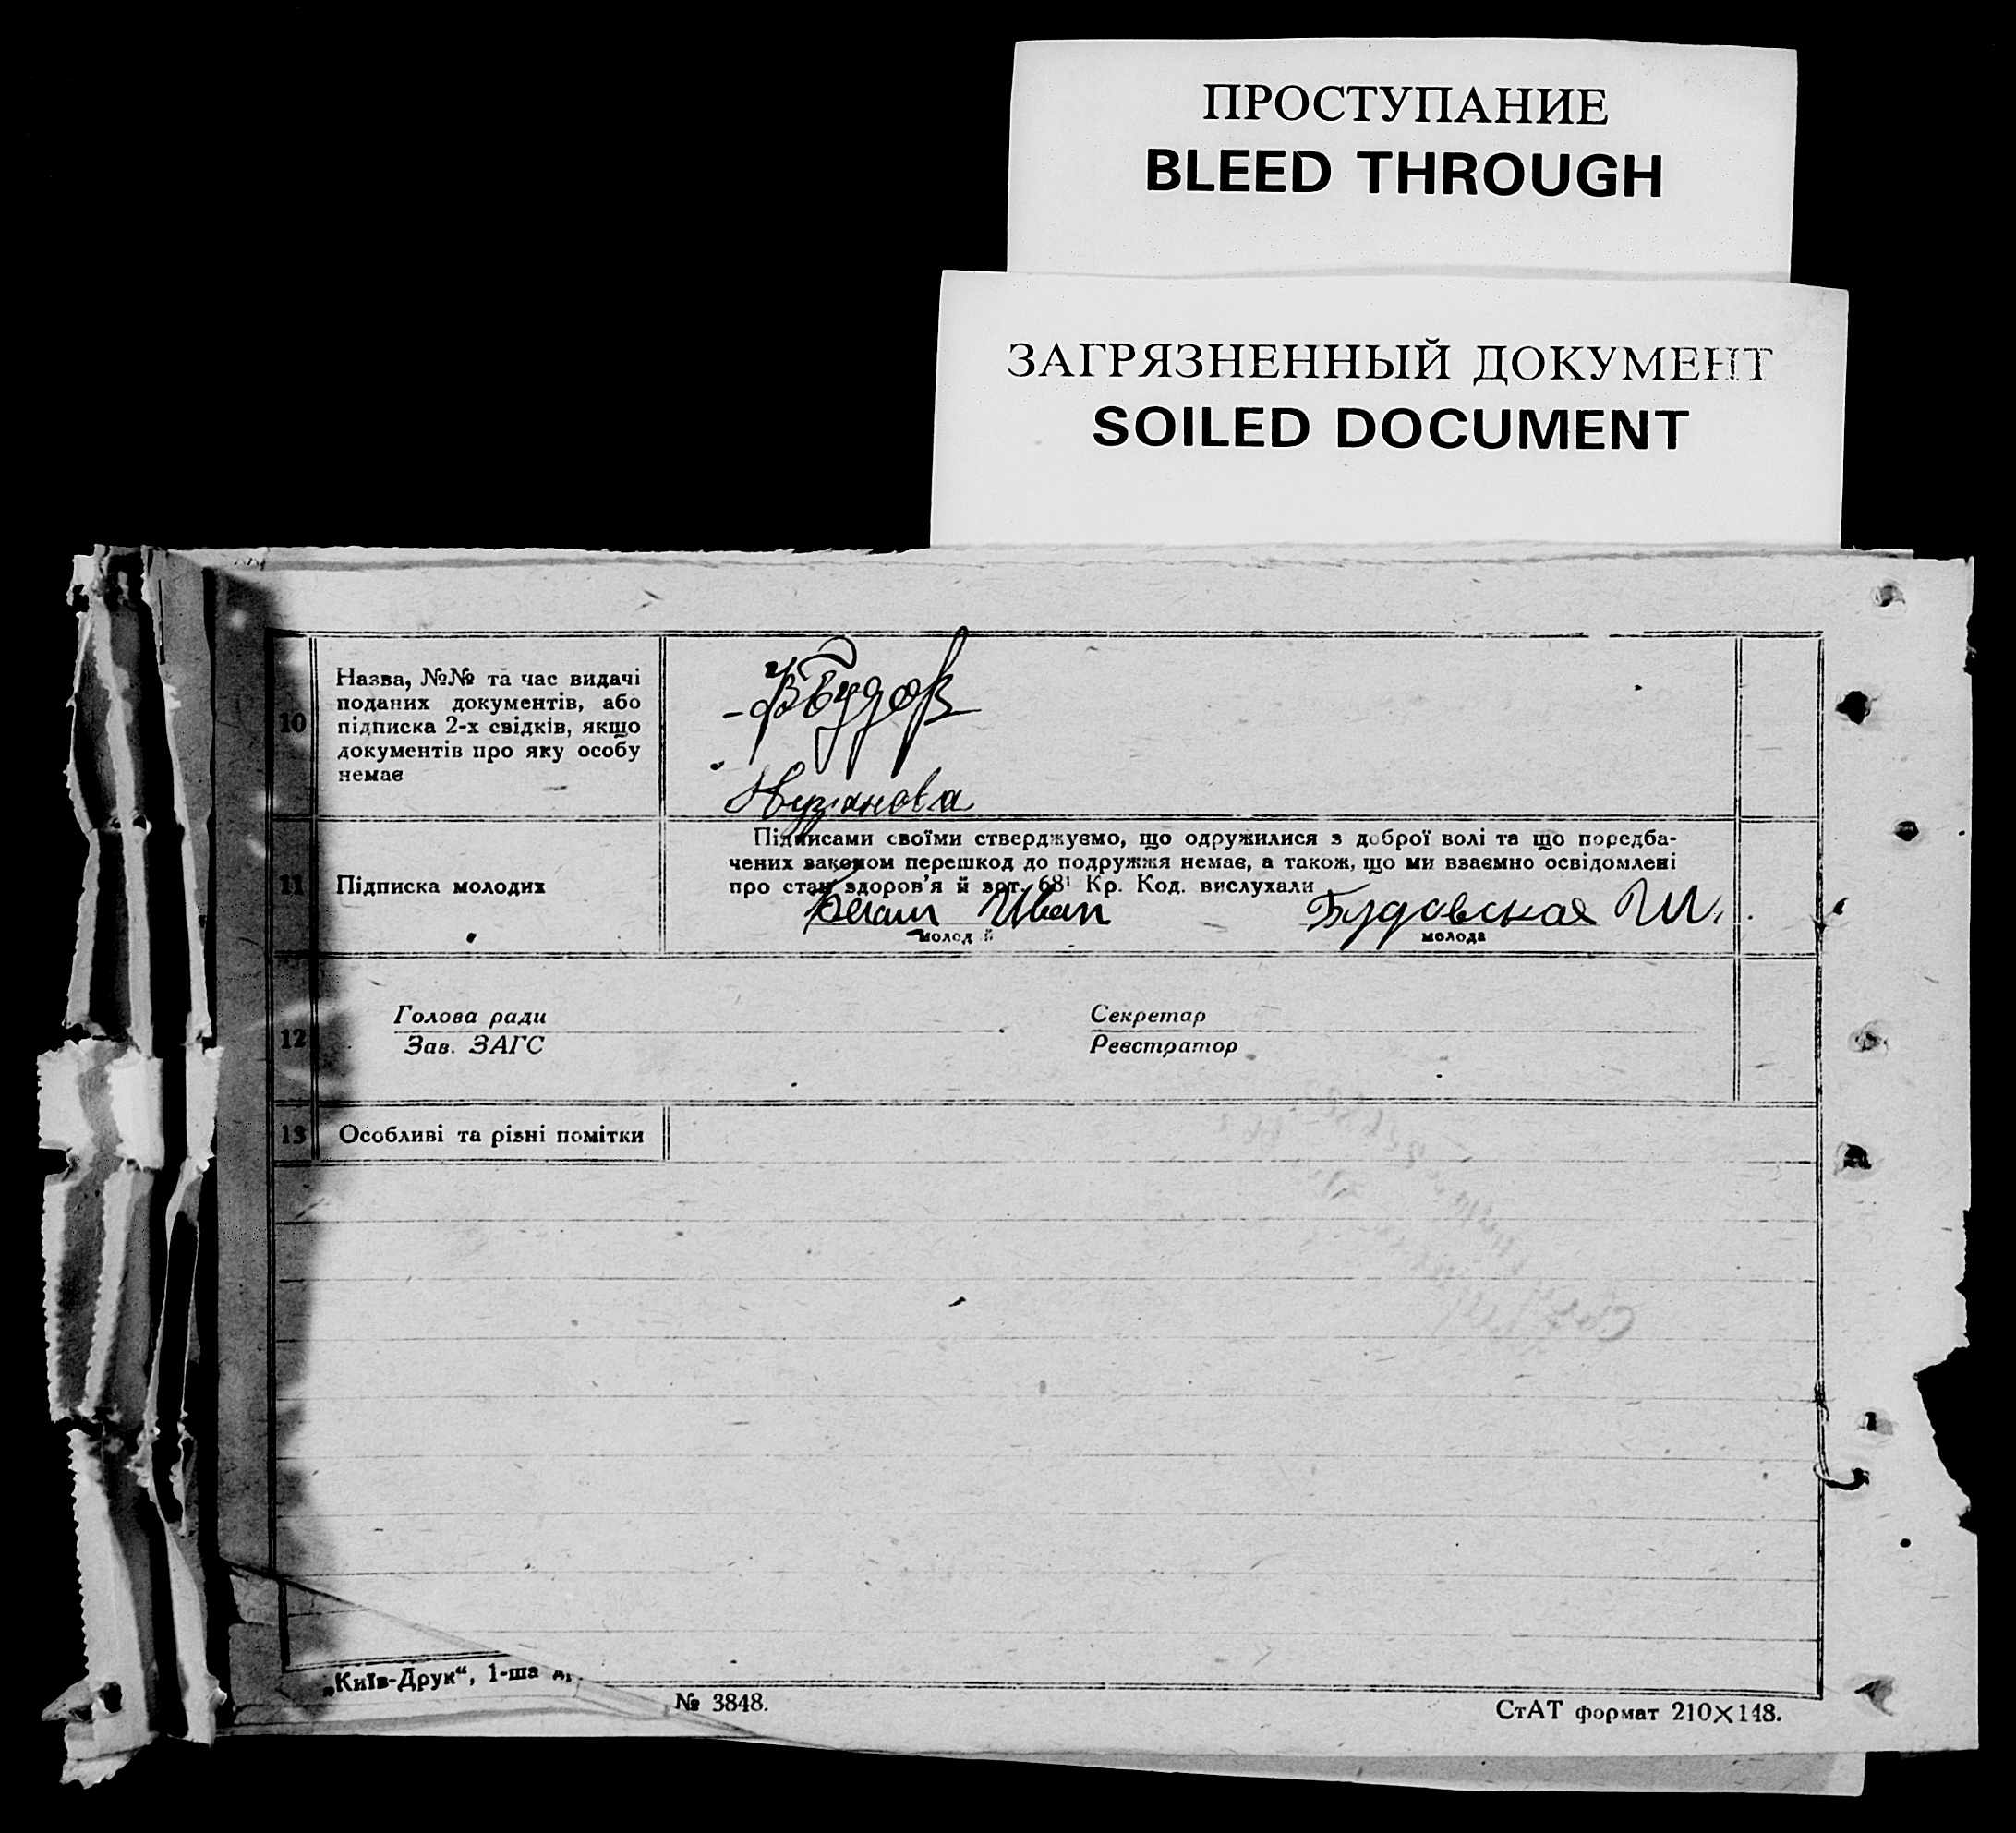 ПРОСТУПАНИЕ
BLEED THROUGH
ЗАГРЯЗНЕННЫЙ ДОКУМЕНТ
SOILED DOCUMENT
10
Назва, №№ та час видачі
поданих документів, або
підписка 2-х свідків, якщо
документів про яку особу
немає
11
Підписка молодих
Підписами своїми стверджуємо, що одружилися з доброї волі та що передба-
чених законом перешкод до подружжя немає, а також, що ми взаємно освідомлені
про стан здоров'я й арт. 68¹ Кр. Код. вислухали
Иван
Будовская
молодий
молода
12
Голова ради
Зав. ЗАГС
Секретар
Реєстратор
13
Особливі та різні помітки
„Київ-Друк“, 1-ша
№ 3848.
СтАТ формат 210×148.